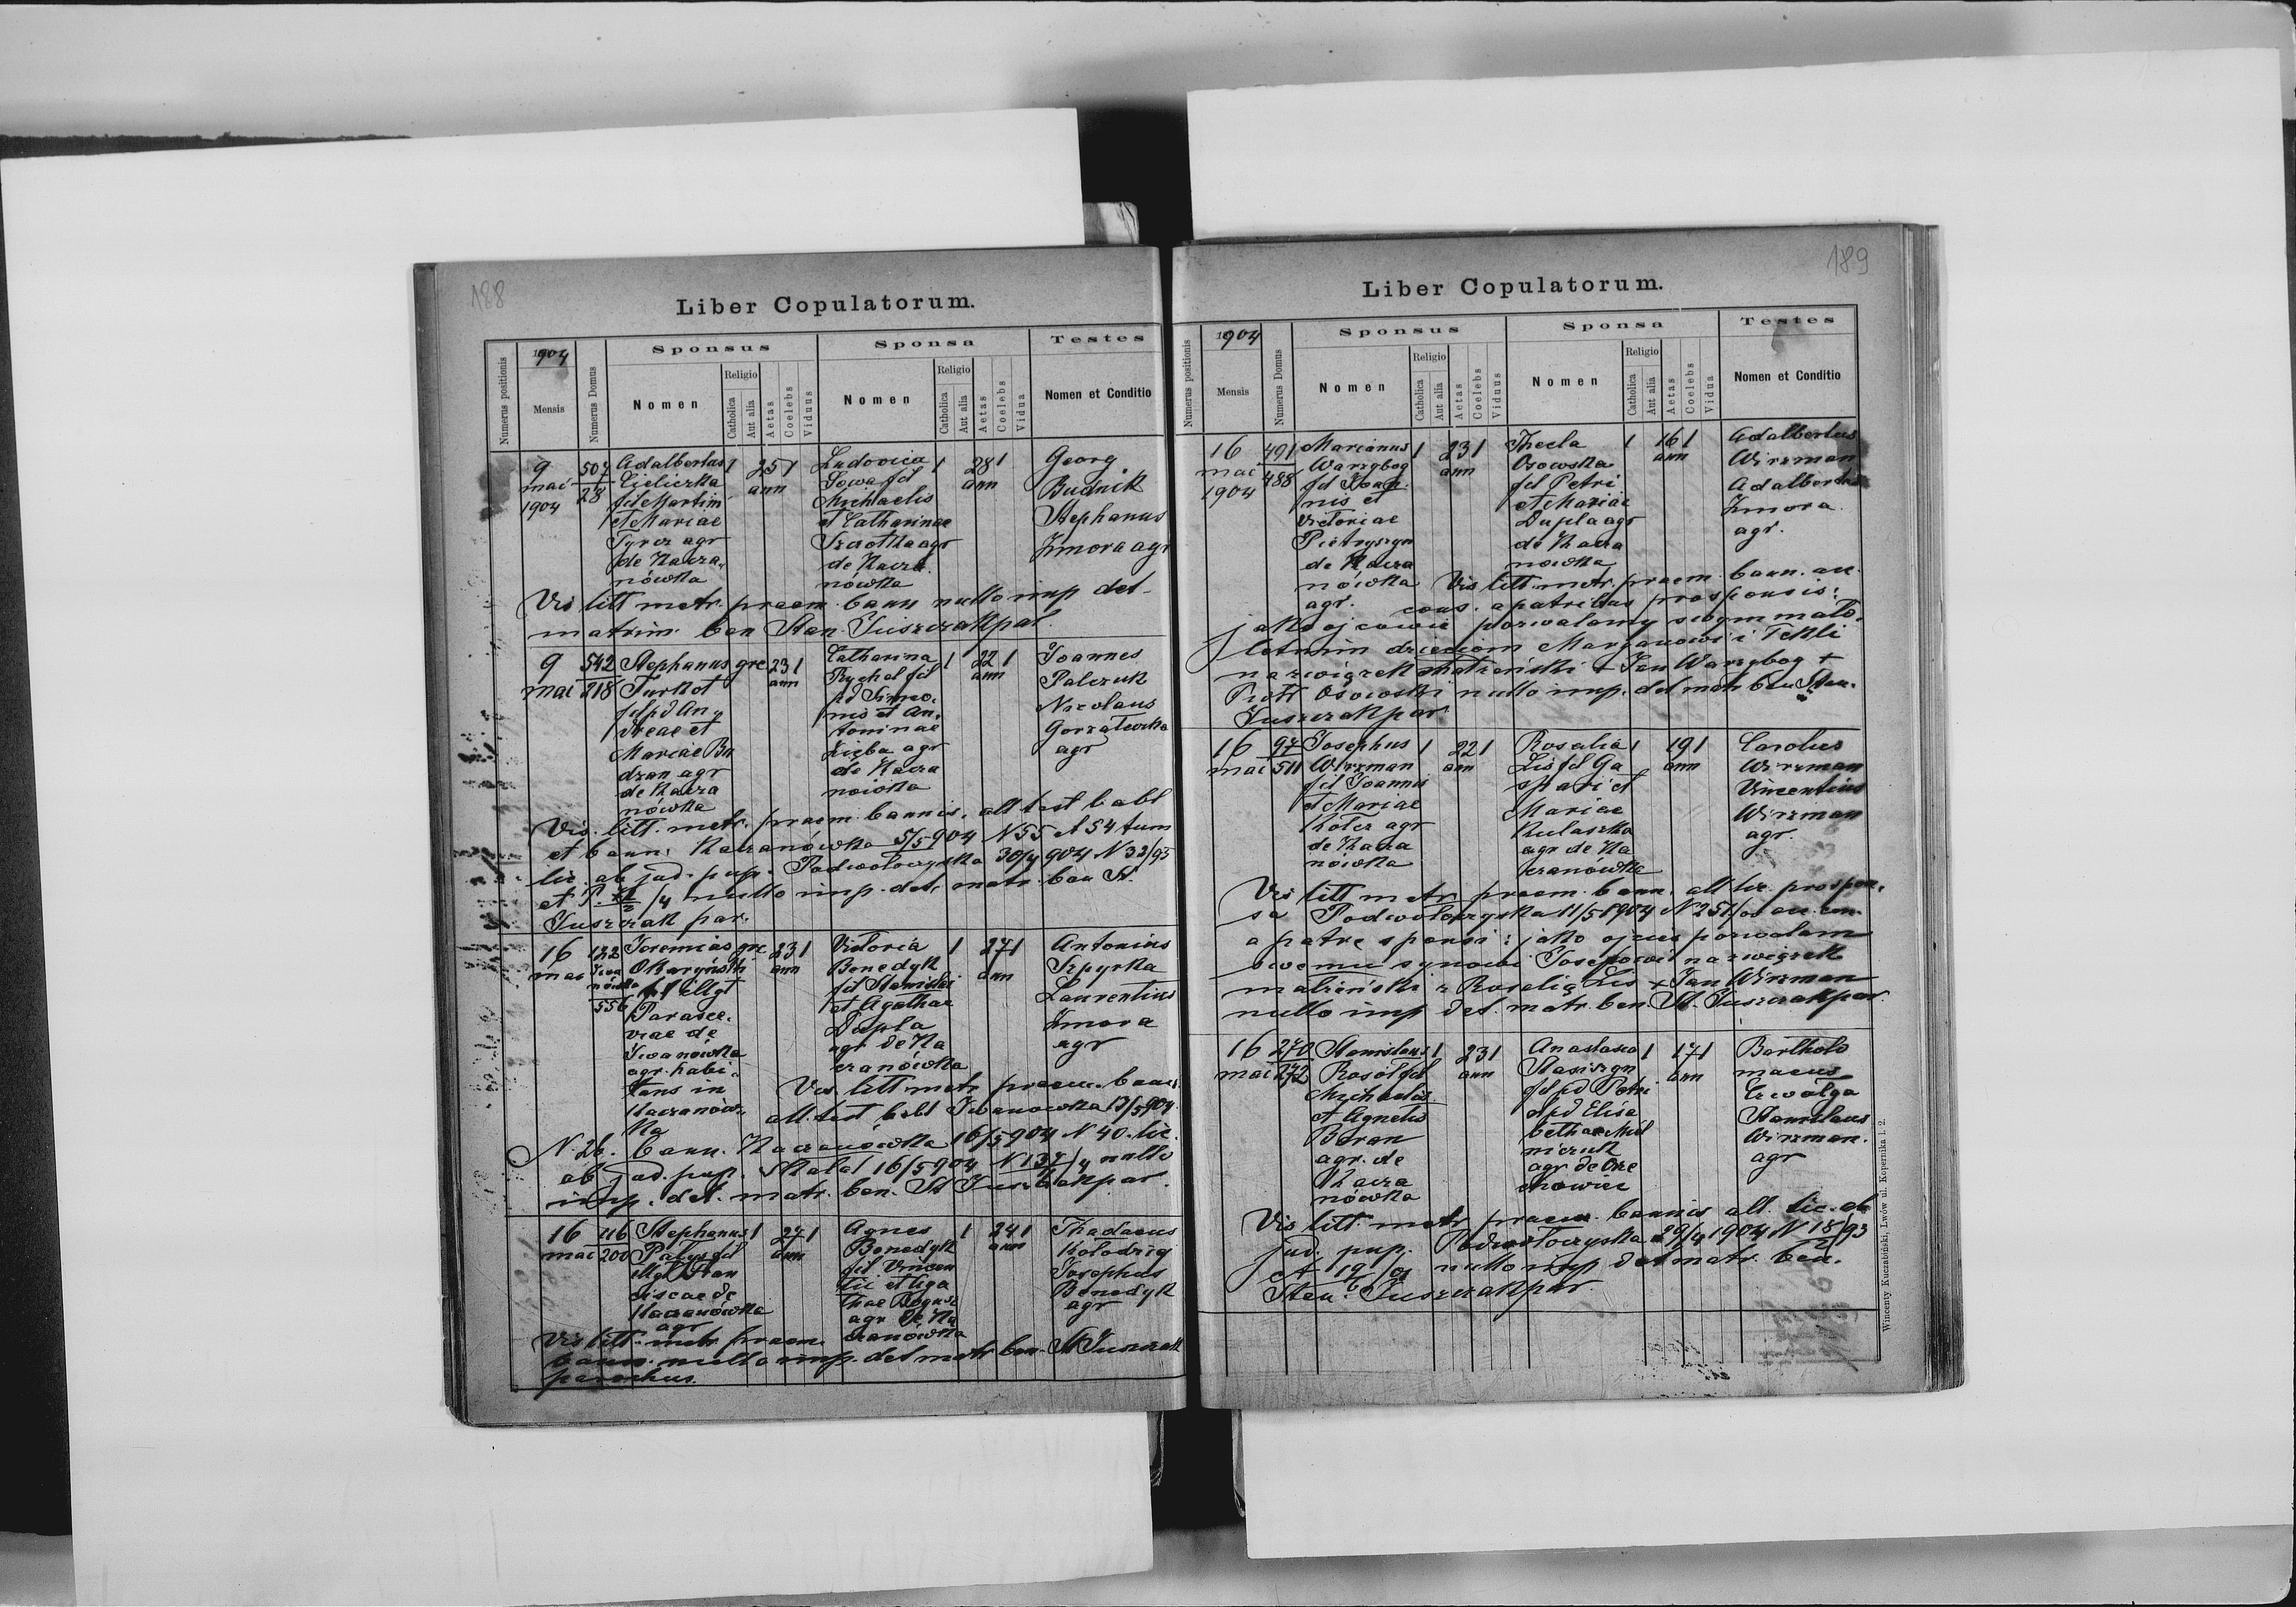 188
Liber Copulatorum.
Numerus positionis
1904
Mensis
Numerus Domus
Sponsus
Nomen
Religio
Catholica
Aut alia
Aetas
Coelebs
Viduus
Sponsa
Nomen
Religio
Catholica
Aut alia
Aetas
Coelebs
Vidua
Testes
Nomen et Conditio
9
mai
1904
507
28
Adalbertus
Cieliczka
fil Martini
et Mariae
agr
de Kacza
nówka
1
25 1
ann
Ludovica
Sowa fil
Michaelis
et Catharinae
agr
de Kacza
nówka
1
28 1
ann
Georg
Budnik
Stephanus
Zmora agr
Vis litt metr. praem. bann nullo imp det
matrim ben Stan. Juszczak par
9
mai
542
218
Stephanus
Turkot
fil pd An
dreae et
Mariae Bu
dzan agr
de Kacza
nówka
gre
23 1
ann
Catharina
Rychel fil
pd Simo
nis et An
toninae
Zięba agr
de Kacza
nówka
1
22 1
ann
Joannes
Palczuk
Nicolaus
agr
Vis. litt. metr. praem. bannis, all. test babt
et bann. Kaczanówka 5/5 904 N 55 et 54 tum
lic. ab jud. pup. Podwołoczyska 30/4 904 N 33/93
et P. /4 nullo imp. det. matr. ben St.
Juszczak par.
16
mai
122
Iwa
nówka
556
Jeremias
Okaryński
fil illgt
Parasce
viae de
Iwanówka
agr. habi
tans in
Kaczanów
ka
gre
23 1
ann
Victoria
Benedyk
fil Stanislai
et Agathae
Dupla
agr de Ka
czanówka
1
27 1
ann
Antonius
Szpyrka
Laurentius
Zmora
agr
Vis. litt metr praem. bann.
all. test babt Iwanówka 13/5 904
N. 26. bann. Kaczanówka 16/5 904 N 40. lic.
ab jud. pup. Skałat 16/5 904 N 137/4 nullo
imp. det. matr. ben. St Juszczak par.
16
mai
116
200
Stephanus
fil
illgt Fran
ciscae de
Kaczanówka
agr
1
27 1
ann
Agnes
Benedyk
fil Vincen
tii et Aga
thae
agr de Ka
czanówka
1
24 1
ann
Thadaeus
Kołodzij
Josephus
Benedyk
agr
Vis litt. metr praem.
bann. nullo imp. det matr ben. St Juszczak
parochus.
189
Liber Copulatorum.
Numerus positionis
1904
Mensis
Numerus Domus
Sponsus
Nomen
Religio
Catholica
Aut alia
Aetas
Coelebs
Viduus
Sponsa
Nomen
Religio
Catholica
Aut alia
Aetas
Coelebs
Vidua
Testes
Nomen et Conditio
16
mai
1904
491
488
Marianus
Warzybog
fil Joan
nis et
Victoriae
Pietryszyn
de Kacza
nówka
agr.
1
23 1
ann
Thecla
Osowska
fil Petri
et Mariae
Dupla agr
de Kacza
nowka
1
16 1
ann
Adalbertus
Wirzman
Adalbertus
Zmora
agr.
Vis litt. metr. praem. bann. au.
cons. a patribus pro sponsis:
jako ojcowie pozwalamy swoym mało
letnim dzieciom Maryanowi i Tekli
na związek małżeński + Jan Warzybog +
Piotr Osowski nullo imp. det matr ben Stan.
Juszczak par.
16
mai
97
511
Josephus
Wirzman
fil Joannis
et Mariae
Kotez agr
de Kacza
nówka
1
22 1
ann
Rosalia
Lis fil Ga
spari et
Mariae
Kulaszka
agr de Ka
czanówka
1
19 1
ann
Carolus
Wirzman
Vincentius
Wirzman
agr.
Vis litt metr praem. bann. all lic. pro spon
sa Podwołoczyska 11/5 1904 N 251/00 au. con.
a patre sponsi: jako ojciec pozwalam
swemu synowi Josefowi na związek
małżeński z Rosalią Lis + Jan Wirzman
nullo imp det. matr. ben. St. Juszczak par.
16
mai
270
272
Stanislaus
Rosół fil
Michaelis
et Agnetis
Baran
agr. de
Kacza
nówka
1
23 1
ann
Anastasia
Stasiszyn
fil pd Petri
et pd Elisa
bethae Mel
niczuk
agr de Orze
chowiec
1
17 1
ann
Bartholo
maeus
Czwolga
Stanislaus
Wirzman.
agr
Vis litt. metr praem. bannis all. lic. ab
jud. pup. Podwołoczyska 29/4 1904 N 18/93
et nullo imp det matr. ben.
Stan. Juszczak par.
Wincenty Kuczabiński, Lwów ul. Kopernika l. 2.